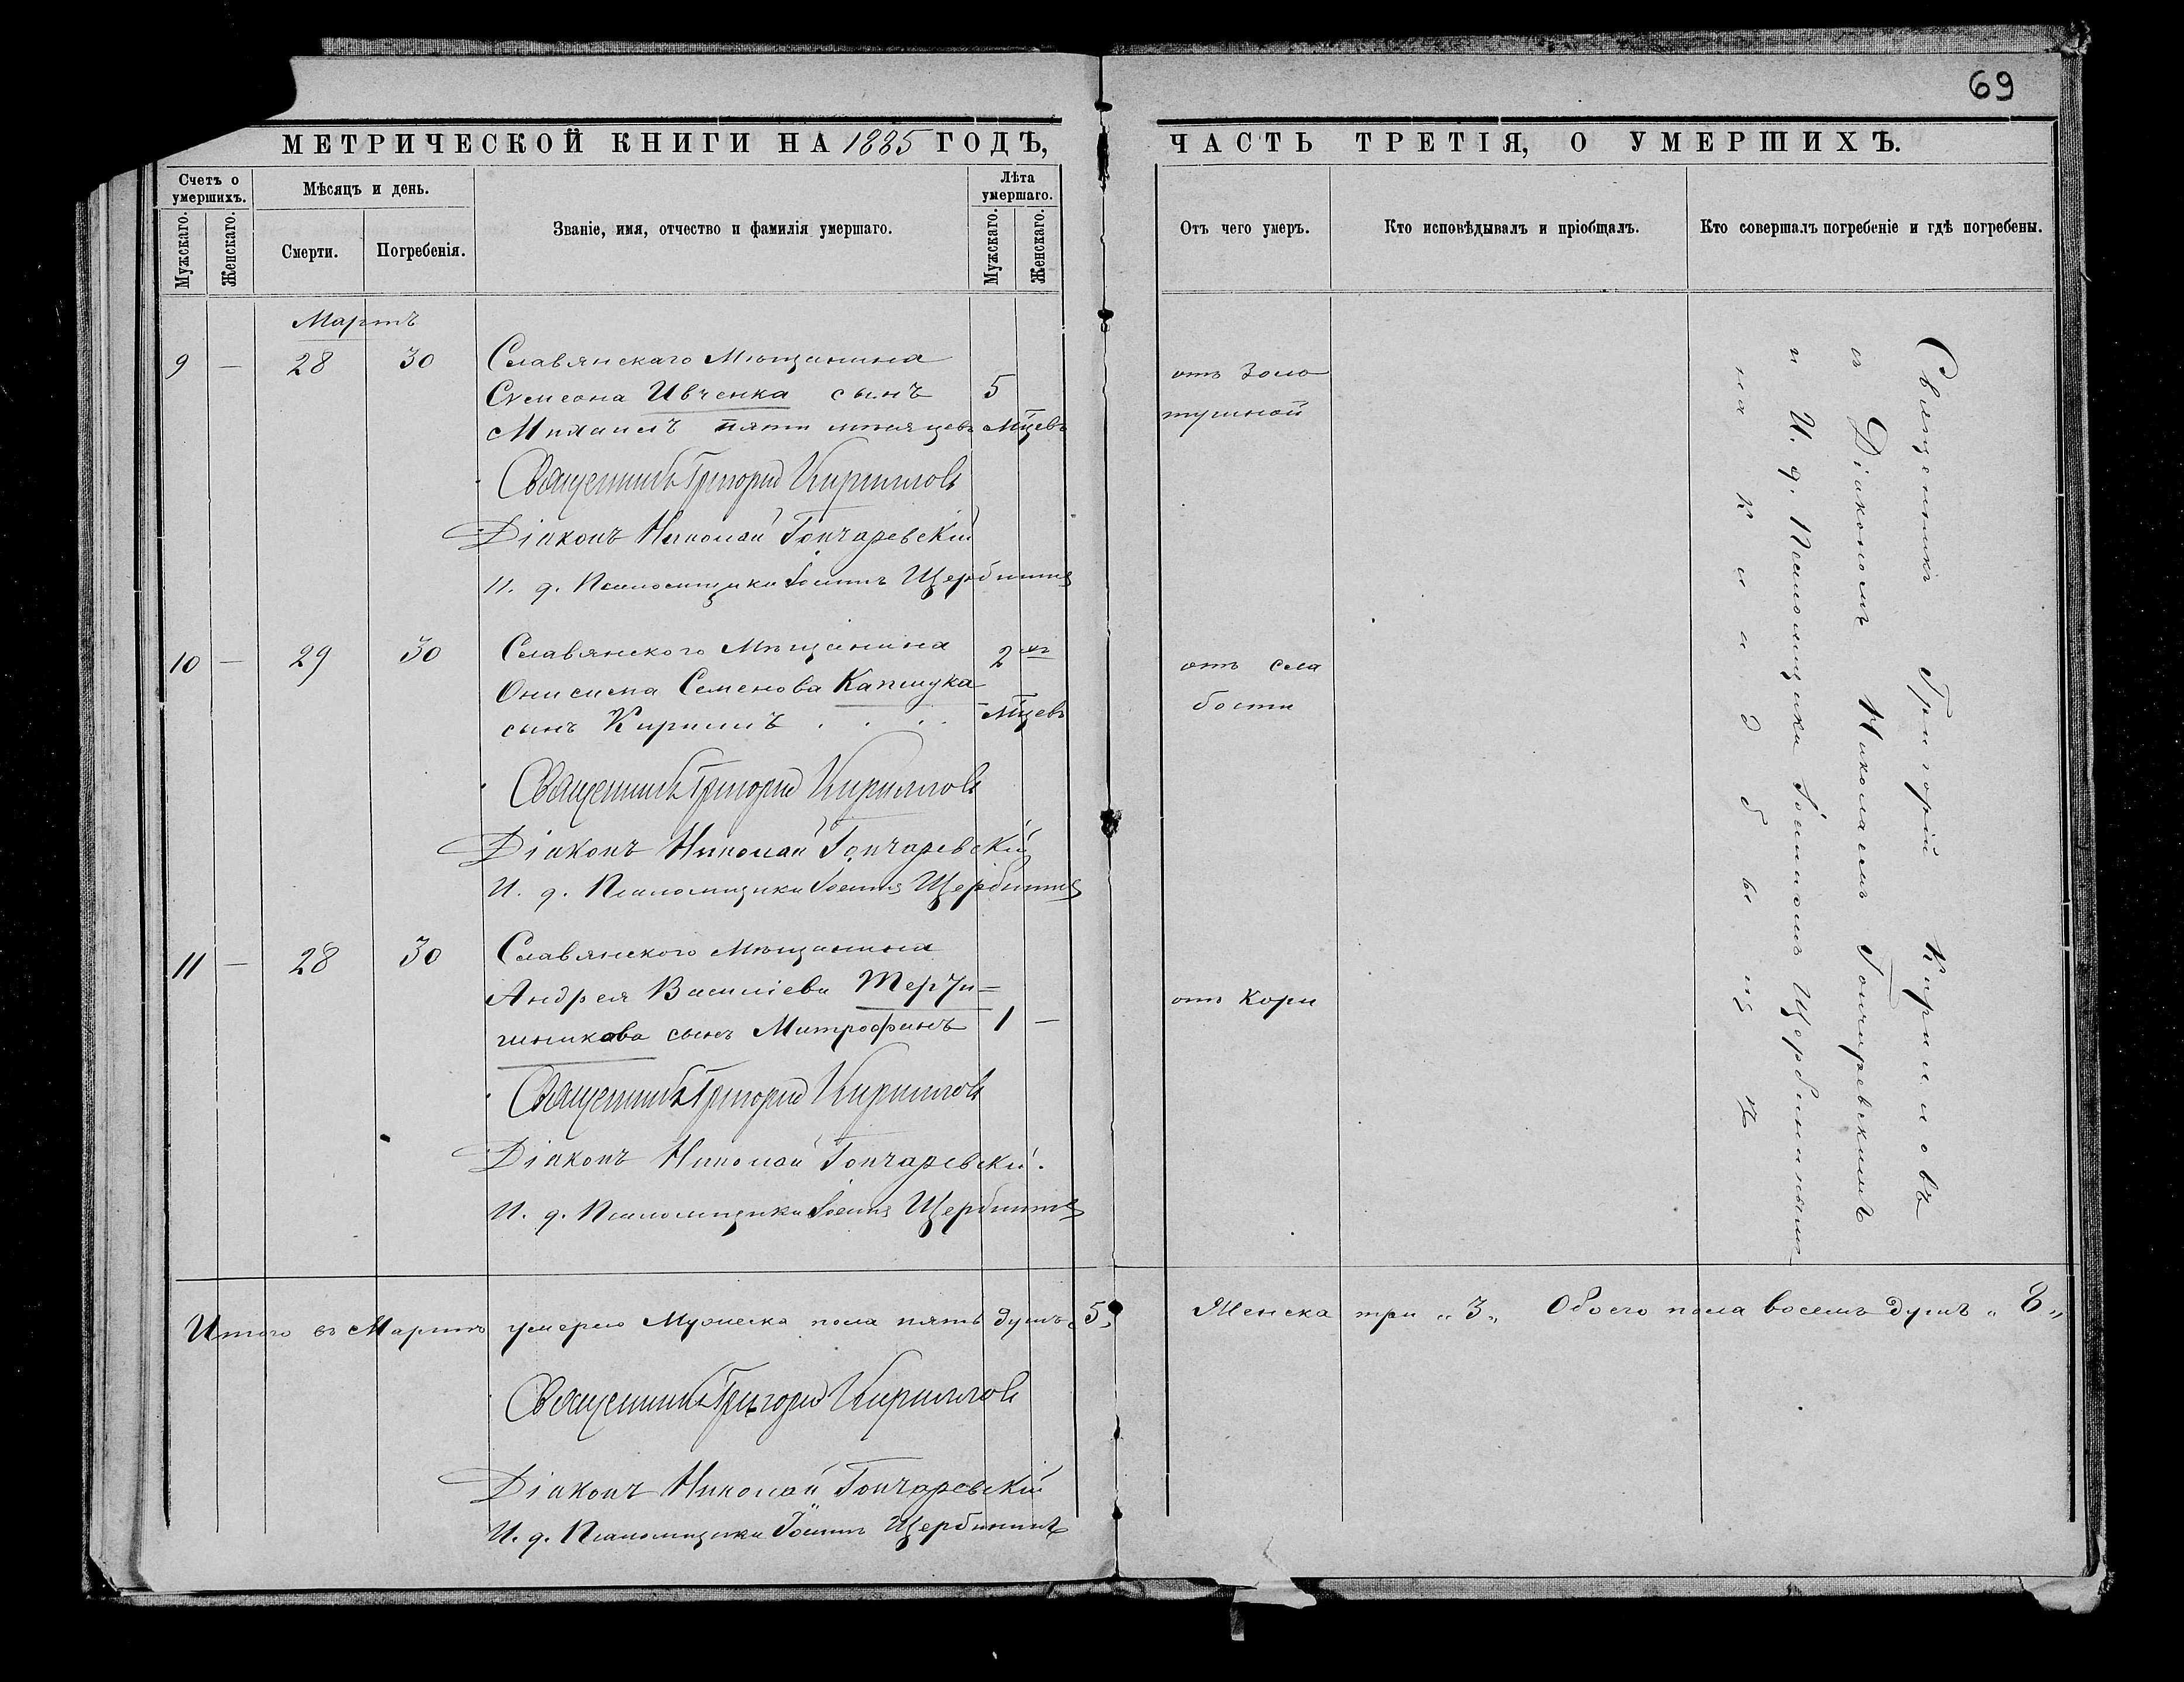 69
МЕТРИЧЕСКОЙ КНИГИ НА 1885 ГОДЪ,
ЧАСТЬ ТРЕТІЯ, О УМЕРШИХЪ.
Счетъ о умершихъ.
Мужскаго.
Женскаго.
Мѣсяцъ и день.
Смерти.
Погребенія.
Званіе, имя, отчество и фамилія умершаго.
Лѣта умершаго.
Мужскаго.
Женскаго.
Отъ чего умеръ.
Кто исповѣдывалъ и пріобщалъ.
Кто совершалъ погребеніе и гдѣ погребены.
Мартъ
9 — 28 30 Славянскаго Мѣщанина
Сѵмеона Ивченка сынъ 5
Михаилъ пяти мѣсяцевъ Мцевъ
отъ золо
тушной
Священникъ Григорій Кирилловъ
Діаконъ Николай Гончаревскій
И. д. Псаломщика Іоаннъ Щербининъ
10 — 29 30 Славянского Мѣщанина 2хъ
Онисима Семенова Капшука
сынъ Кирилъ . . . . Мцевъ
отъ сла
бости
Священникъ Григорій Кирилловъ
Діаконъ Николай Гончаревскій
И. д. Псаломщика Іоаннъ Щербининъ
11 — 28 30 Славянского Мѣщанина
Андрея Василіева
сынъ Митрофанъ 1 —
отъ Кори
Священникъ Григорій Кирилловъ
Діаконъ Николай Гончаревскій.
И. д. Псаломщика Іоаннъ Щербининъ
Священникъ Григорій Кирилловъ
съ Діакономъ Николаемъ Гончаревскимъ
и И. д. Псаломщика Іоанномъ Щербининымъ
на Кладбыщѣ
Итого въ Мартѣ умерло Мужеска пола пять душъ „5„ Женска три „3„ Обоего пола восемь душъ „8„
Священникъ Григорій Кирилловъ
Діаконъ Николай Гончаревскій
И. д. Псаломщика Іоаннъ Щербининъ